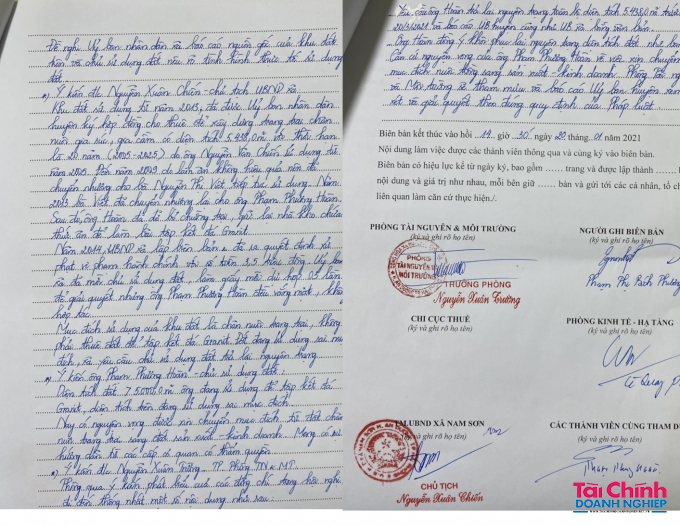 Đề nghị Uỷ ban nhân dân xã báo cáo nguồn gốc của khu đất,
hiện và chủ sử dụng đất nêu rõ tình hình thực tế sử dụng
đất.
*) Ý kiến đ/c Nguyễn Xuân Chiến - chủ tịch UBND xã
Khu đất sử dụng từ năm 2005, đã được Uỷ ban nhân dân
huyện ký hợp đồng cho thuê để xây dựng trang trại chăn
nuôi gia súc, gia cầm có diện tích 5.498,0 m² thời hạn
là 20 năm (2005-2025) do ông Nguyễn Văn Chiến sử dụng từ
năm 2005. Đến năm do làm ăn không hiệu quả nên đã
chuyển nhượng cho bà Nguyễn Thị Việt tiếp tục sử dụng. Năm
2013 bà Việt đã chuyển nhượng lại cho ông Phạm Phương Hoàn.
Sau đó, ông Hoàn đã dỡ bỏ chuồng trại, giữ lại nhà kho chứa
thức ăn để làm bãi tập kết đá Granit.
Năm 2019 UBND xã lập biên bản và ra quyết định xử
phạt vi phạm hành chính với số tiền 3,5 triệu đồng. Uỷ ban
xã đã mời chủ sử dụng đất, làm giấy mời dự họp 03 lần
để giải quyết nhưng ông Phạm Phương Hoàn đều vắng mặt, không
hợp tác.
Mục đích sử dụng của khu đất là chăn nuôi trang trại, không
phải thuê đất để tập kết đá Granit. Đất đang sử dụng sai mục
đích, xã yêu cầu chủ sử dụng đất trả lại nguyên trạng
*) Ý kiến ông Phạm Phương Hoàn - chủ sử dụng đất:
Diện tích đất ông đang sử dụng để tập kết đá
Granit, diện tích trên đang sử dụng sai mục đích.
Nay có nguyện vọng được xin chuyển mục đích từ đất chăn
nuôi trang trại sang đất sản xuất - kinh doanh. Mong có sự
hướng dẫn từ các cấp có quan có thẩm quyền.
*) Ý kiến đ/c Nguyễn Xuân Trường. TP. Phòng TN & MT.
Thông qua ý kiến phát biểu của các đồng chí trong hội nghị
đi đến thống nhất một số nội dung như sau:
Yêu cầu ông Hoàn trả lại nguyên trạng toàn bộ diện tích 5.498,0 m² trước
20/3/2021 và báo cáo UB huyện cũng như UB xã bằng văn bản.
Ông Hoàn đồng ý khôi phục lại nguyên trạng diện tích đất như ban
Căn cứ nguyện vọng của ông Phạm Phương Hoàn về việc xin chuyển
mục đích nuôi trồng sang sản xuất - kinh doanh. Phòng Tài ng
và Môi trường sẽ tham mưu và báo cáo Uỷ ban huyện xem
xét và giải quyết theo đúng quy định của Pháp luật.
Biên bản kết thúc vào hồi 19 giờ 30, ngày 29 tháng 01 năm 2021
Nội dung làm việc được các thành viên thông qua và cùng ký vào biên bản.
Biên bản có hiệu lực kể từ ngày ký, bao gồm ........ trang và được lập thành ........
nội dung và giá trị như nhau, mỗi bên giữ ...... bản và gửi tới các cá nhân, tổ ch
liên quan làm căn cứ thực hiện./.
PHÒNG TÀI NGUYÊN & MÔI TRƯỜNG
(ký và ghi rõ họ tên)
NGƯỜI GHI BIÊN BẢN
(ký và ghi rõ họ tên)
PHÒNG
TÀI NGUYÊN VÀ
MÔI TRƯỜNG
TRƯỞNG PHÒNG
Nguyễn Xuân Trường
Phạm Thị Bích Phương
CHI CỤC THUẾ
(ký và ghi rõ họ tên)
PHÒNG KINH TẾ - HẠ TẦNG
(ký và ghi rõ họ tên)
TM.UBND XÃ NAM SƠN
(ký và ghi rõ họ tên)
CÁC THÀNH VIÊN CÙNG THAM DỰ
(ký và ghi rõ họ tên)
CHỦ TỊCH
Nguyễn Xuân Chiến
Tài Chính
DOANH NGHIỆP